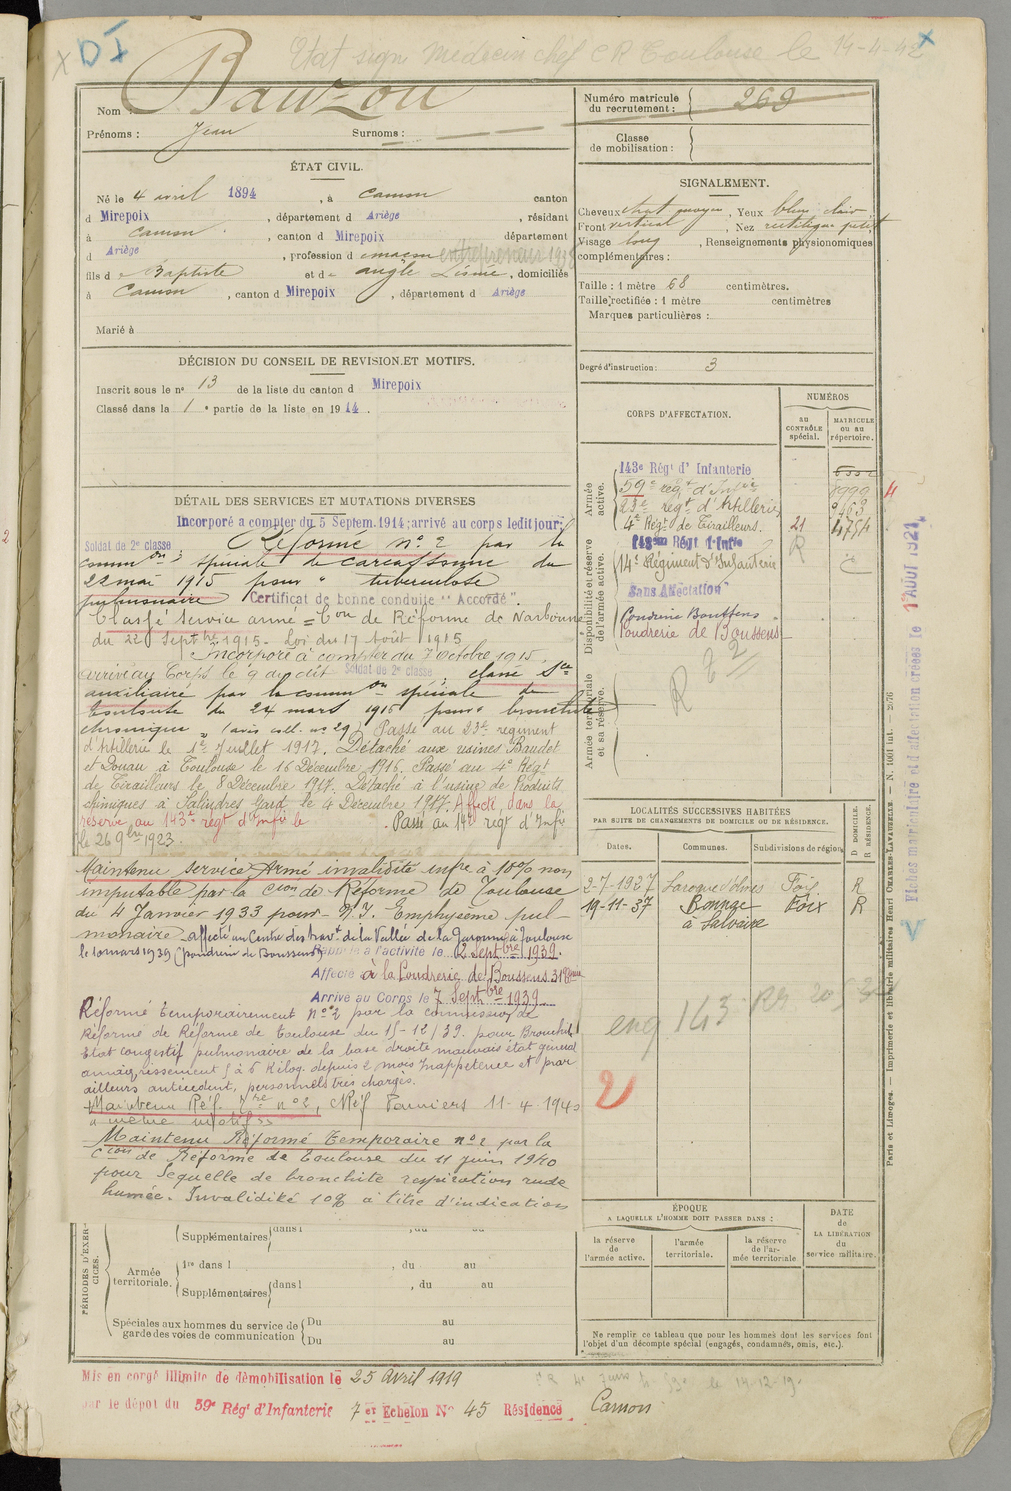 DI
Etat sign Medecin chef CR Toulouse le 14-4-42
Nom : Bauzou
Prénoms : Jean Surnoms :
Numéro matricule
du recrutement : 269
Classe
de mobilisation :
ÉTAT CIVIL.
Né le 4 avril 1894, à Camon canton
d Mirepoix, département d Ariège, résidant
à Camon, canton d Mirepoix département
d Ariège, profession d maçon entrepreneur 1938
fils d e Baptiste et d e , domiciliés
à Camon, canton d Mirepoix, département d Ariège
Marié à
SIGNALEMENT.
Cheveux chat moyen, Yeux bleu clair
Front vertical, Nez rectiligne petit
Visage long, Renseignements physionomiques
complémentaires :
Taille : 1 mètre 68 centimètres.
Taille rectifiée : 1 mètre centimètres
Marques particulières :
Degré d'instruction : 3
DÉCISION DU CONSEIL DE REVISION ET MOTIFS.
Inscrit sous le n° 13 de la liste du canton d Mirepoix
Classé dans la 1e partie de la liste en 1914.
DÉTAIL DES SERVICES ET MUTATIONS DIVERSES
Incorporé a compter du 5 Septem. 1914; arrivé au corps ledit jour;
Soldat de 2e classe Réformé n° 2 par la
common spéciale de Carcassonne du
22 mai 1915 pour " tuberculose
pulmonaire Certificat de bonne conduite "Accordé".
Classé service armé = Con de Réforme de Narbonne
du 22 Septbre 1915 - Loi du 17 Août 1915
Incorporé à compter du 7 octobre 1915,
arrivé au Corps le 9 du dit Soldat de 2e classe ; classé Sce
auxiliaire par la common spéciale de
Toulouse du 24 mars 1916 pour " bronchite
chronique " (avis coll. n° 29) Passé au 23e régiment
d'Artillerie le 1er Juillet 1917. Détaché aux usines Baudet
et Donau à Toulouse le 16 Décembre 1916. Passé au 4e Régt
de Tirailleurs le 8 Décembre 1917. Détaché à l'usine de Produits
chimiques à Salindres Gard le 4 Décembre 1917. Affecté dans la
réserve au 143e régt d'Infie le . Passé au 14e régt d'Infie
le 26 9bre 1923.
Maintenu service Armé invalidité infre à 10% non
imputable par la Cion de Réforme de Toulouse
du 4 Janvier 1933 pour - N.I. Emphysème pul-
monaire affecté au Centre des travt de la Vallée de la Garonne à Toulouse
le 10 mars 1939 (poudrerie de Boussens) Rappelé à l'activité le 2 Septbre 1939.
Affecté à la Poudrerie de Boussens
Arrivé au Corps le 7 Septbre 1939
Réformé temporairement n° 2 par la commission de
Réforme de Réforme de Toulouse du 15-12/39 pour Bronchite
Etat congestif pulmonaire de la base droite mauvais état général
amaigrissement 5 à 6 Kilog. depuis 2 mois Inappétence et par
ailleurs antécédent, personnels très chargés.
+Maintenu Réf. Tre n° 2, CRéf Pamiers 11-4 1940
à même motif
Maintenu Réformé Temporaire n° 2 par la
Cion de Réforme de Toulouse du 11 juin 1940
pour Sequelle de bronchite respiration rude
humée. Invalidité 10% à titre d'indication
CORPS D'AFFECTATION.
NUMÉROS
au
CONTRÔLE
spécial.
MATRICULE
ou au
répertoire.
Armée
active.
143e Régt d'Infanterie
59e régt d'Infie
23e régt d'Artillerie
4e Régt de Tirailleurs. 21 4754
Disponibilité et réserve
de l'armée active.
143me Régt d'Infie R
14e Régiment d'Infanterie
Sans Affectation
Poudrerie Boussens
Poudrerie de Boussens
Armée territoriale
et sa réserve.
LOCALITÉS SUCCESSIVES HABITÉES
PAR SUITE DE CHANGEMENTS DE DOMICILE OU DE RÉSIDENCE.
D DOMICILE.
R RÉSIDENCE.
Dates. Communes. Subdivisions de région.
2-7-1927 Laroque d'Olmes Foix R
19-11-37 Bonnac Foix R
à Salvaire
eng 143
2
ÉPOQUE
A LAQUELLE L'HOMME DOIT PASSER DANS :
la réserve
de
l'armée active.
l'armée
territoriale.
la réserve
de l'ar-
mée territoriale
DATE
de
LA LIBÉRATION
du
service militaire.
Ne remplir ce tableau que pour les hommes dont les services font
l'objet d'un décompte spécial (engagés, condamnés, omis, etc.).
PÉRIODES D'EXER-
CICES.
Supplémentaires dans l , du au
Armée
territoriale.
1re dans l , du au
Supplémentaires dans l , du au
Spéciales aux hommes du service de
garde des voies de communication
Du au
Du au
Mis en congé illimité de démobilisation le 25 Avril 1919
par le dépôt du 59e Régt d'Infanterie 7 er Echelon N° 45 Résidence Camon
Fiches matriculaire et d'affectation créées le 1er AOUT 1921
Paris et Limoges. — Imprimerie et librairie militaires Henri CHARLES-LAVAUZELLE. — N. 1001 int. — 2976